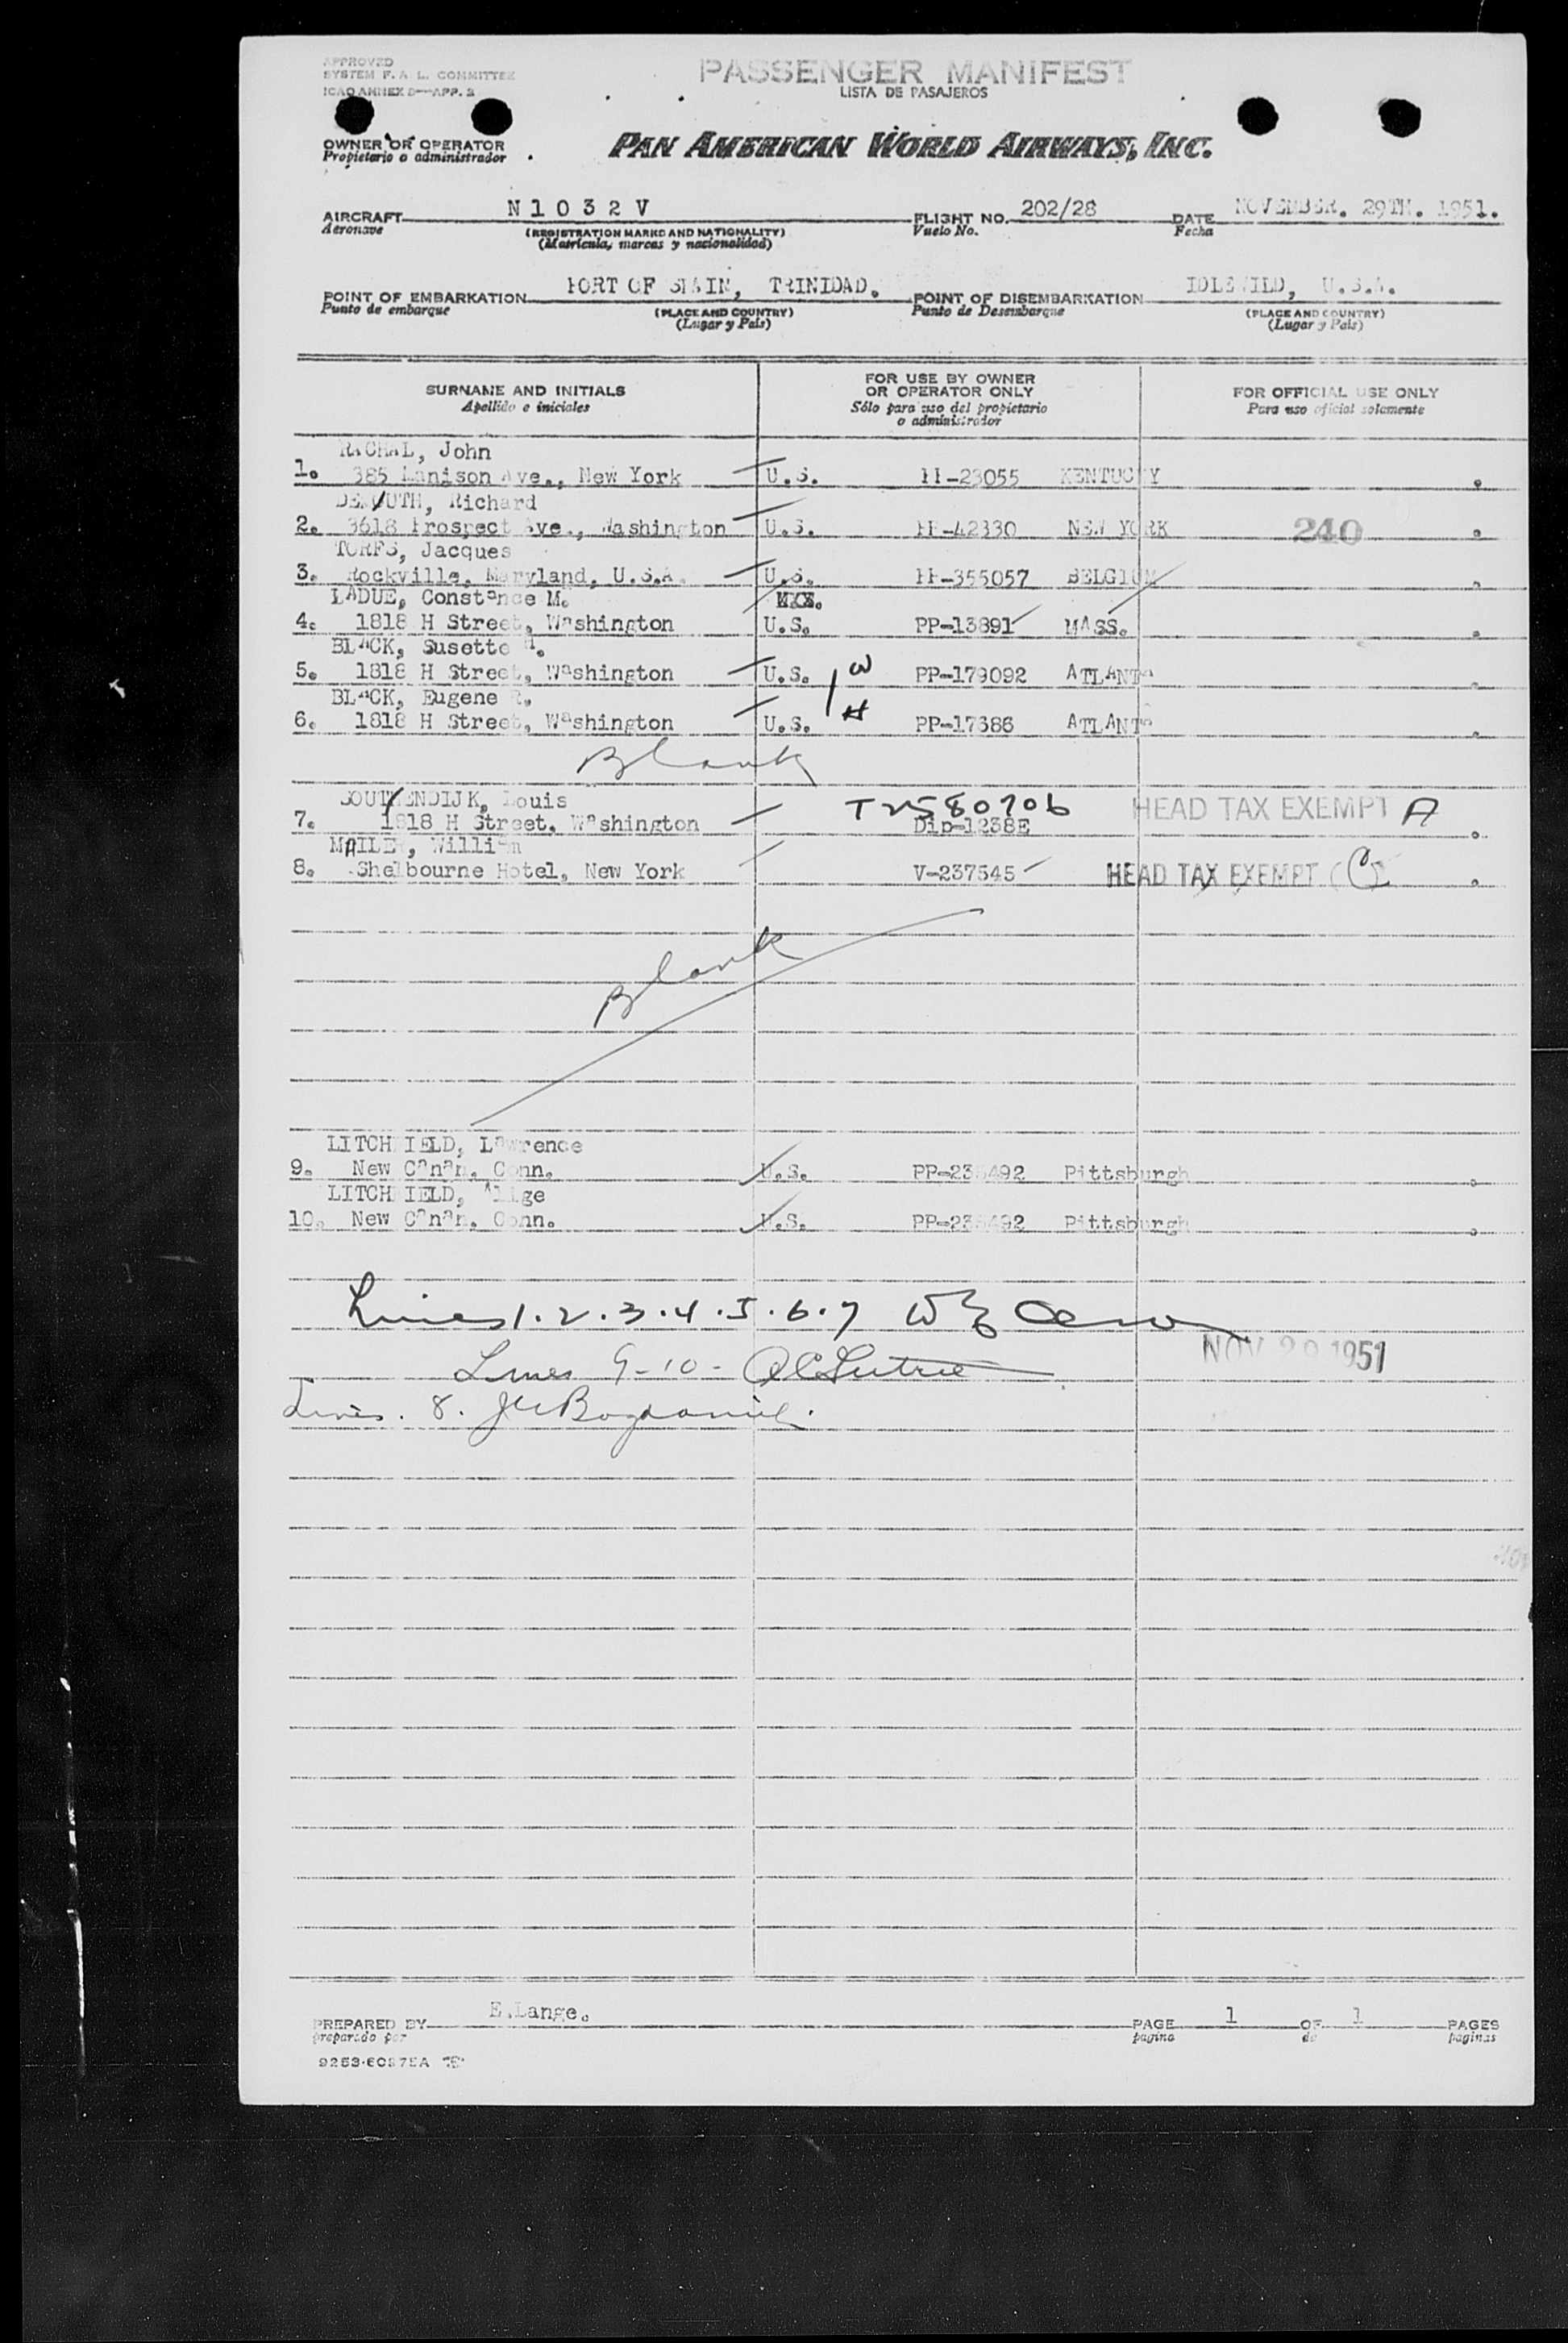 APPROVED
SYSTEM F. A. L. COMMITTEE
ICAO ANNEX 9—APP. 2
PASSENGER MANIFEST
LISTA DE PASAJEROS
OWNER OR OPERATOR
Propietario o administrador
PAN AMERICAN WORLD AIRWAYS, INC.
AIRCRAFT N1032V FLIGHT NO. 202/28 DATE NOVEMBER. 29TH. 1951.
Aeronave (REGISTRATION MARKS AND NATIONALITY) Vuelo No. Fecha
(Matricula, marcas y nacionalidad)
POINT OF EMBARKATION PORT OF SPAIN, TRINIDAD. POINT OF DISEMBARKATION IDLEWILD, U.S.A.
Punto de embarque (PLACE AND COUNTRY) Punto de Desembarque (PLACE AND COUNTRY)
(Lugar y País) (Lugar y País)
SURNAME AND INITIALS FOR USE BY OWNER OR OPERATOR ONLY FOR OFFICIAL USE ONLY
Apellido e iniciales Sólo para uso del propietario o administrador Para uso oficial solamente
RACHAL, John
1. 385 Ave., New York U.S. PP-23055 KENTUCKY
DEMUTH, Richard
2. 3618 Prospect Ave., Washington U.S. PP-42330 NEW YORK 240
TORFS, Jacques
3. Rockville, Maryland, U.S.A. U.S. PP-355057 BELGIUM
LADUE, Constance M.
4. 1818 H Street, Washington U.S. PP-13891 MASS.
BLACK, Susette H.
5. 1818 H Street, Washington U.S. W PP-179092 ATLANTA
BLACK, Eugene R.
6. 1818 H Street, Washington U.S. H PP-17386 ATLANTA
Blank
Louis T2580706 HEAD TAX EXEMPT A
7. 1818 H Street, Washington Dip-1238E
William
8. Shelbourne Hotel, New York V-237545 HEAD TAX EXEMPT (C)
Blank
LITCHFIELD, Lawrence
9. New Canan, Conn. U.S. PP-235492 Pittsburgh
LITCHFIELD,
10. New Canan, Conn. U.S. PP-235492 Pittsburgh
Lines 1.2.3.4.5.6.7
NOV 29 1951
Lines 9-10-
Lines. 8.
PREPARED BY E.Lange. PAGE 1 OF 1 PAGES
preparado por pagina de paginas